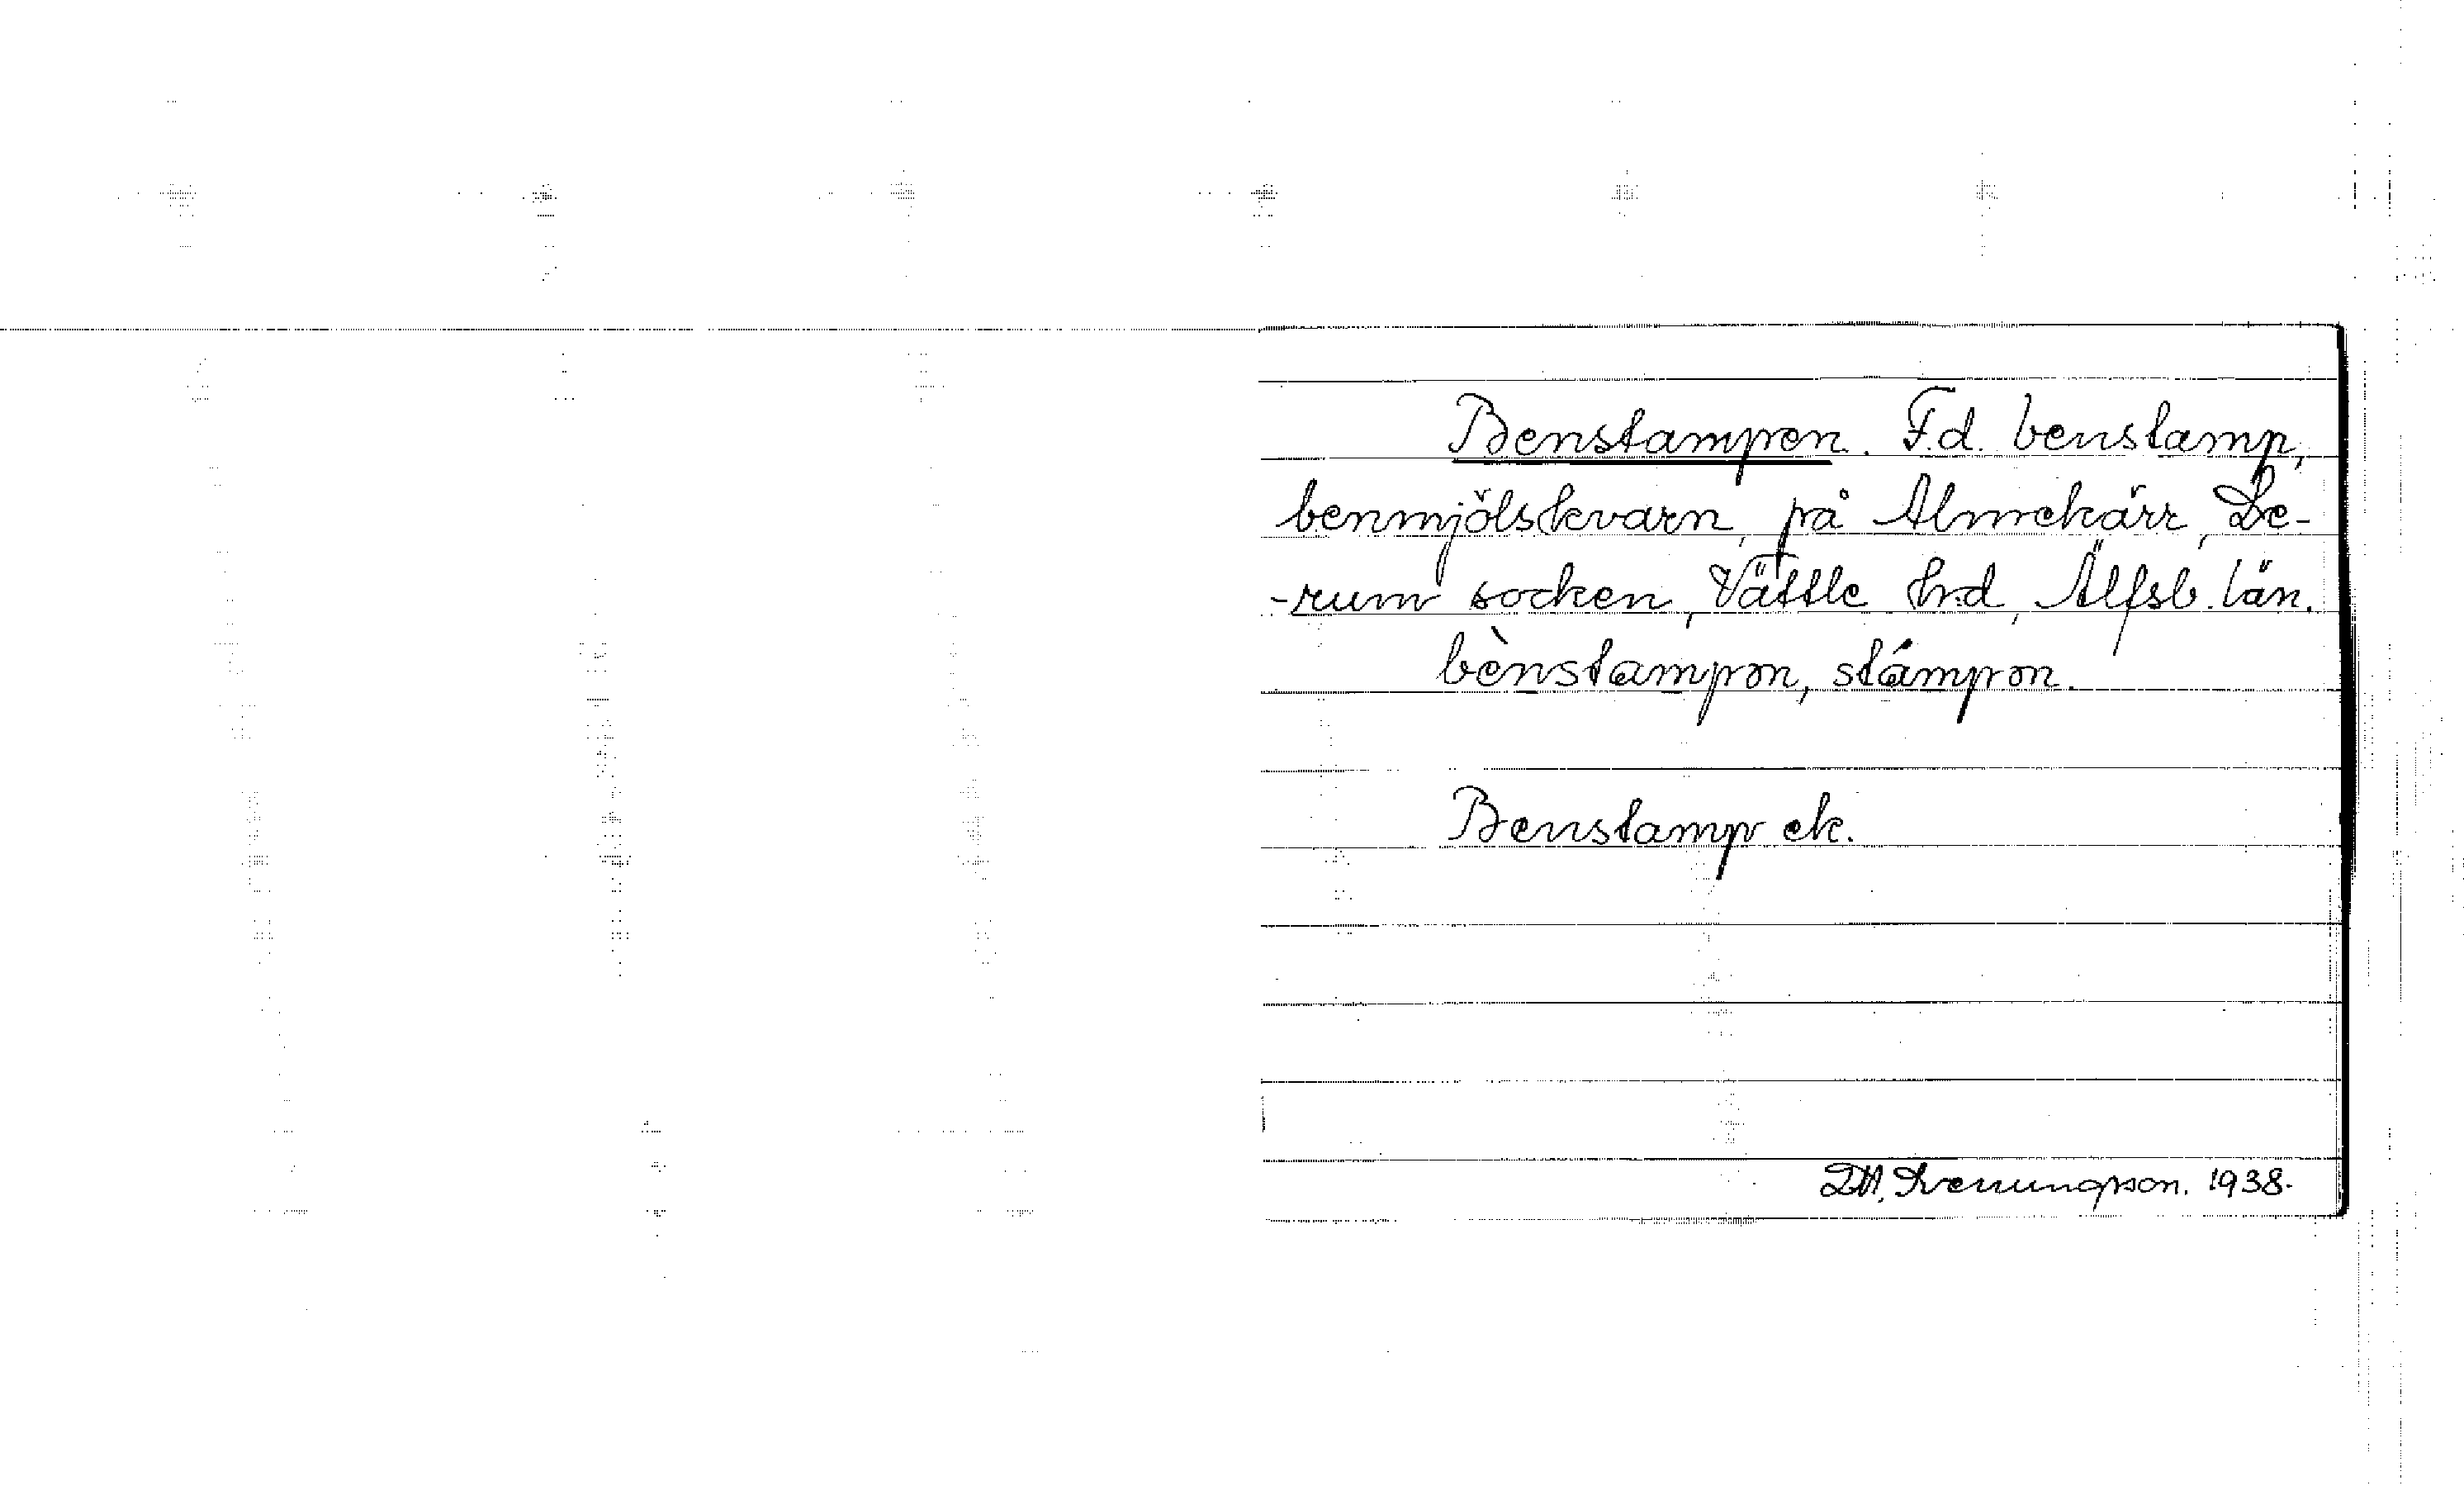 Benstampen. F.d. benstamp,
benmjölskvarn, på Almekärr, Le-
-rum socken, Vättle hrd, Älfsb. län.
bènstampən, stámpən.
Benstamp ek.
1938.